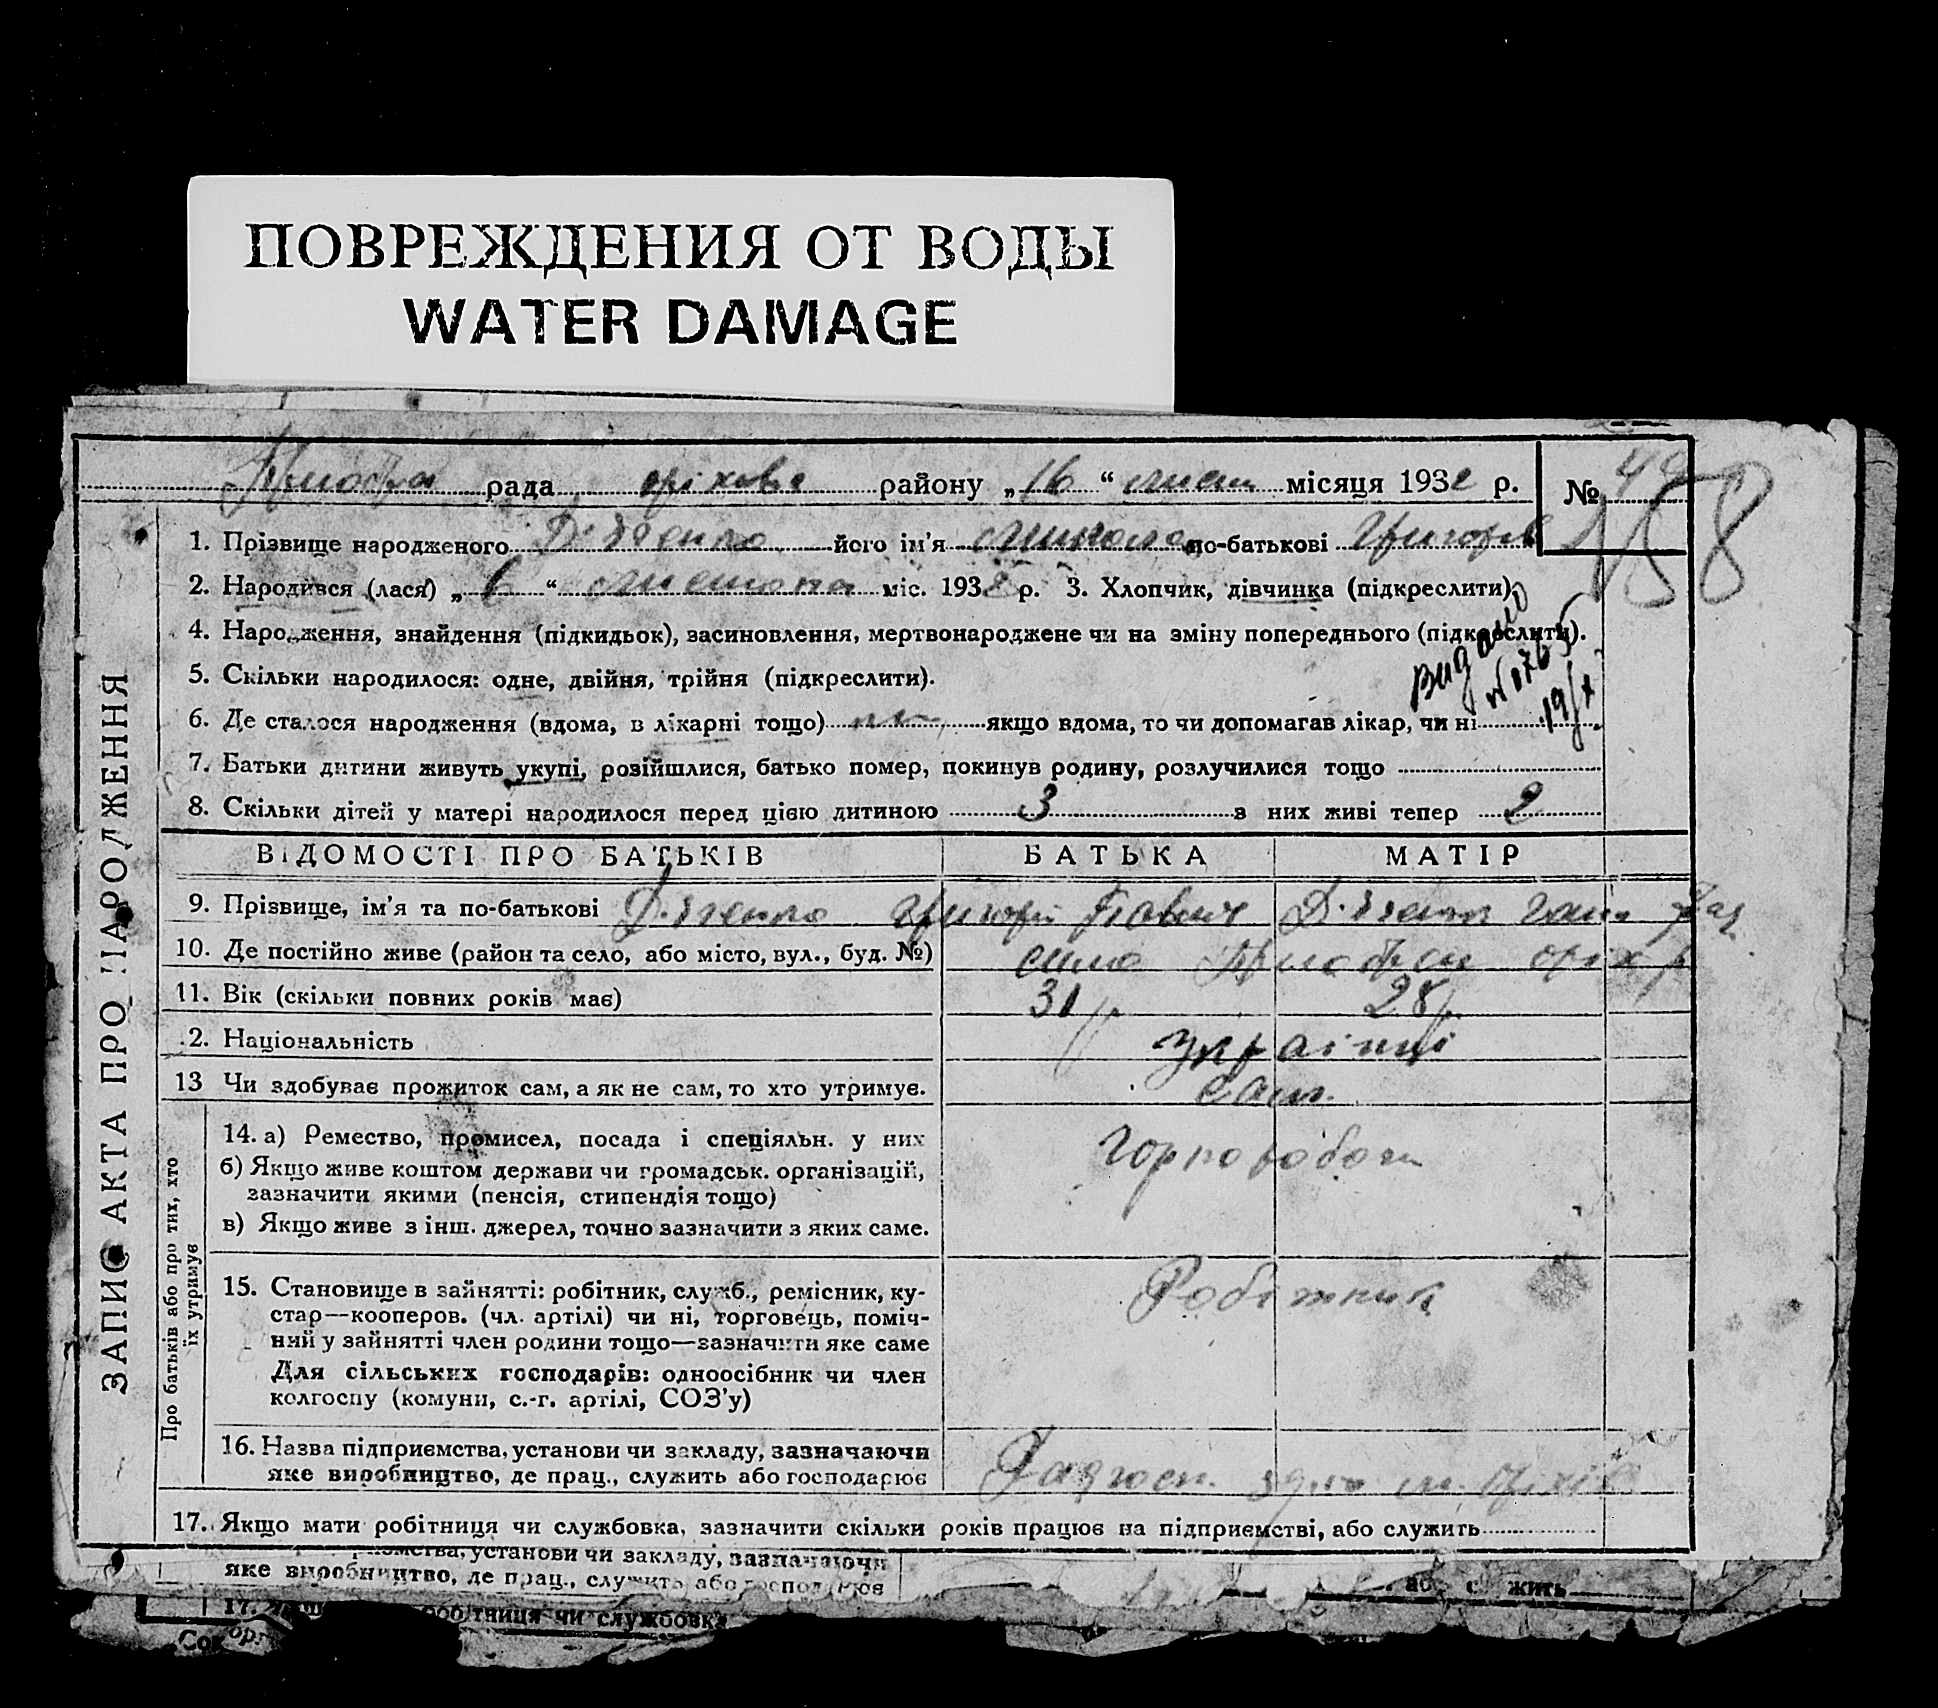 ПОВРЕЖДЕНИЯ ОТ ВОДЫ
WATER DAMAGE
рада оріхове району „16“ лист місяця 1932 р. №
158
1. Прізвище народженого його ім'я по-батькові
2. Народився (лася) „6“ листопа міс. 193 р. 3. Хлопчик, дівчинка (підкреслити)
4. Народження, знайдення (підкидьок), засиновлення, мертвонароджене чи на зміну попереднього (підкреслити).
видано
5. Скільки народилося: одне, двійня, трійня (підкреслити).
6. Де сталося народження (вдома, в лікарні тощо) якщо вдома, то чи допомагав лікар, чи ні
7. Батьки дитини живуть укупі, розійшлися, батько помер, покинув родину, розлучилися тощо
8. Скільки дітей у матері народилося перед цією дитиною 3 з них живі тепер 2
ЗАПИС АКТА ПРО НАРОДЖЕННЯ
ВІДОМОСТІ ПРО БАТЬКІВ БАТЬКА МАТІР
9. Прізвище, ім'я та по-батькові Григорій Павлич
10. Де постійно живе (район та село, або місто, вул., буд. №)
11. Вік (скільки повних років має) 31 р 28 р.
12. Національність Українці
13 Чи здобуває прожиток сам, а як не сам, то хто утримує. Сам.
Про батьків або про тих, хто
їх утримує
14. а) Ремество, промисел, посада і спеціяльн. у них
б) Якщо живе коштом держави чи громадськ. організацій,
зазначити якими (пенсія, стипендія тощо)
в) Якщо живе з інш. джерел, точно зазначити з яких саме.
Чорноробочи
15. Становище в зайнятті: робітник, служб., ремісник, ку-
стар—кооперов. (чл. артілі) чи ні, торговець, поміч-
ний у зайнятті член родини тощо—зазначити яке саме
Для сільських господарів: одноосібник чи член
колгоспу (комуни, с.-г. артілі, СОЗ'у)
Робітник
16. Назва підприємства, установи чи закладу, зазначаючи
яке виробництво, де прац., служить або господарює
Радгосп.
17. Якщо мати робітниця чи службовка, зазначити скільки років працює на підприємстві, або служить
установи чи закладу, зазначаючи
яке виробництво, де прац., служить або господарює
17. робітниця чи службовка